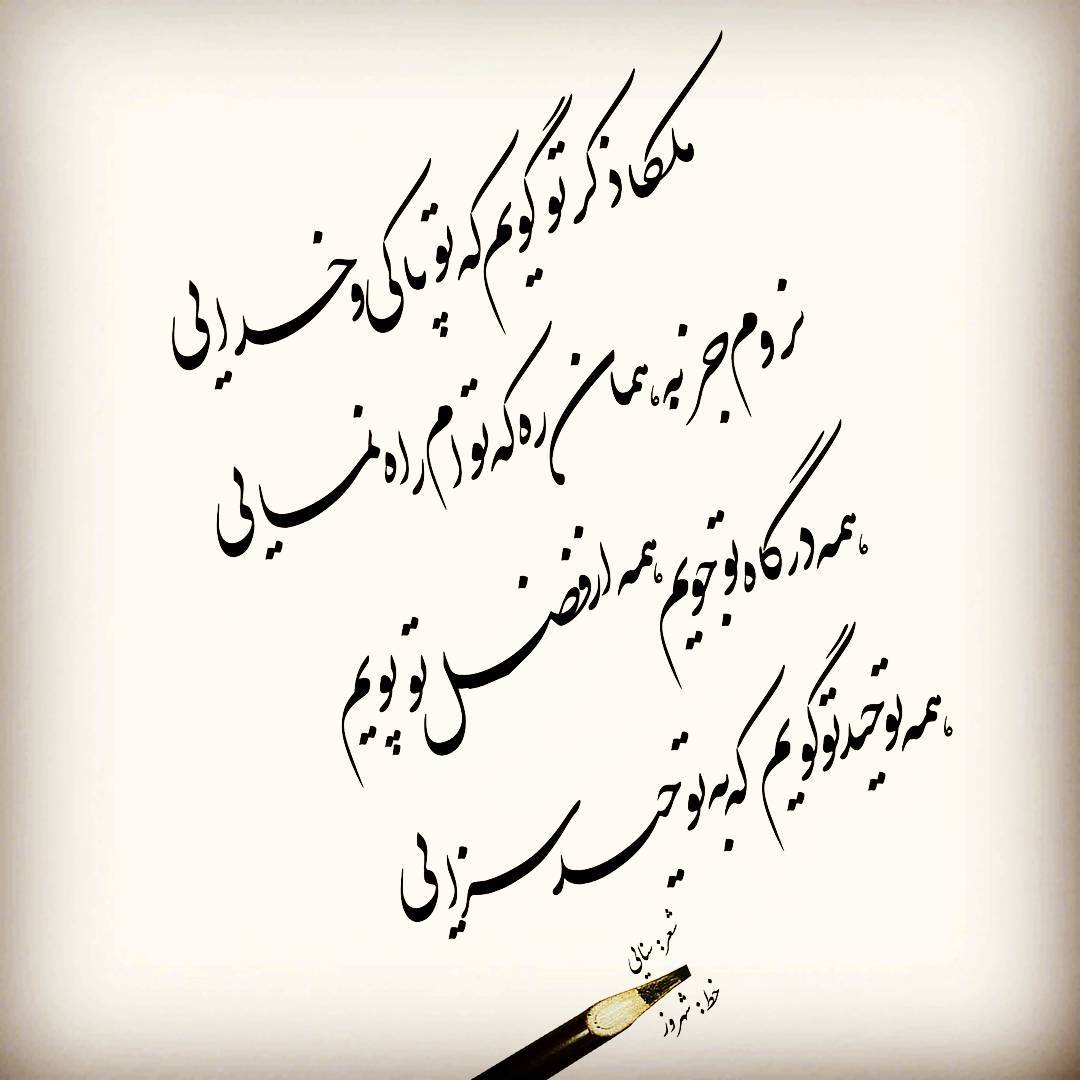 ملکا ذکر تو گویم که تو پاکی و خدایی
نروم جز به همان ره که تو ام راه نمایی
همه درگاه تو جویم همه از فضل تو پویم
همه توحید تو گویم که به توحید سزایی
شعر: سنایی
خط: شهروز